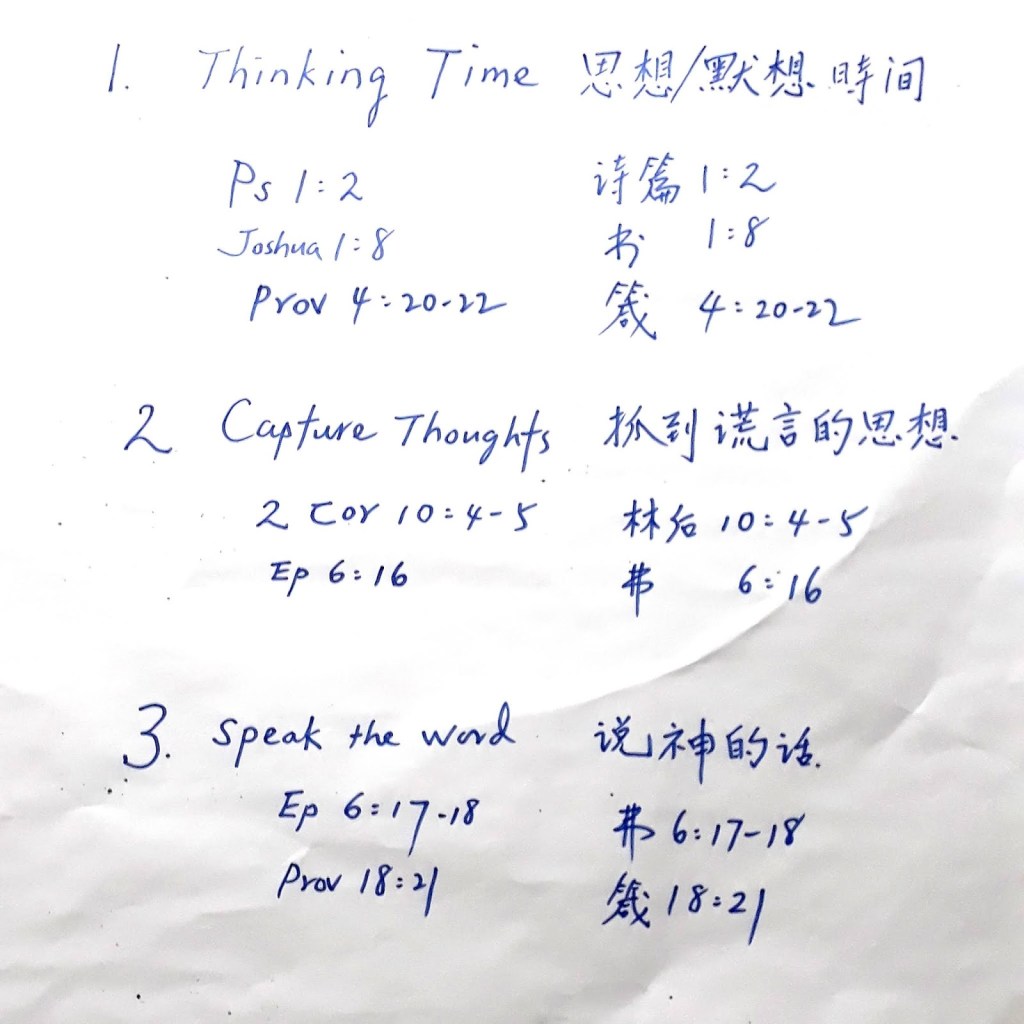 1. Thinking Time 思想/默想時间
Ps 1:2 诗篇 1:2
Joshua 1:8 书 1:8
Prov 4:20-22 箴 4:20-22
2 Capture Thoughts 抓到谎言的思想.
2 Cor 10:4-5 林后 10:4-5
Ep 6:16 弗 6:16
3. Speak the word 说神的话.
Ep 6:17-18 弗 6:17-18
Prov 18:21 箴 18:21